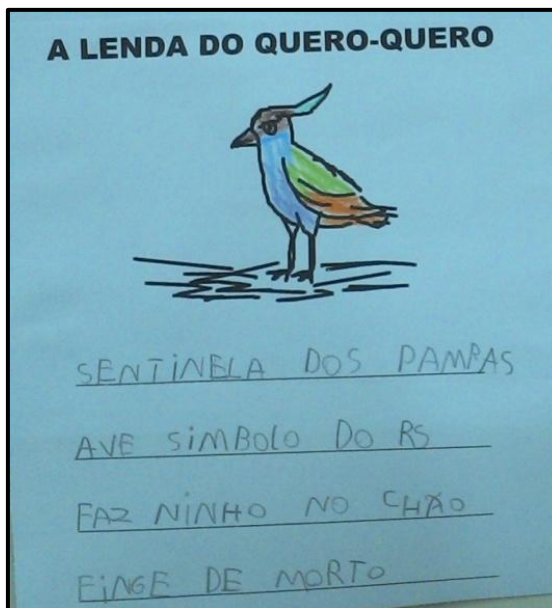 A LENDA DO QUERO-QUERO
SENTINELA DOS PAMPAS
AVE SIMBOLO DO RS
FAZ NINHO NO CHÃO
FINGE DE MORTO